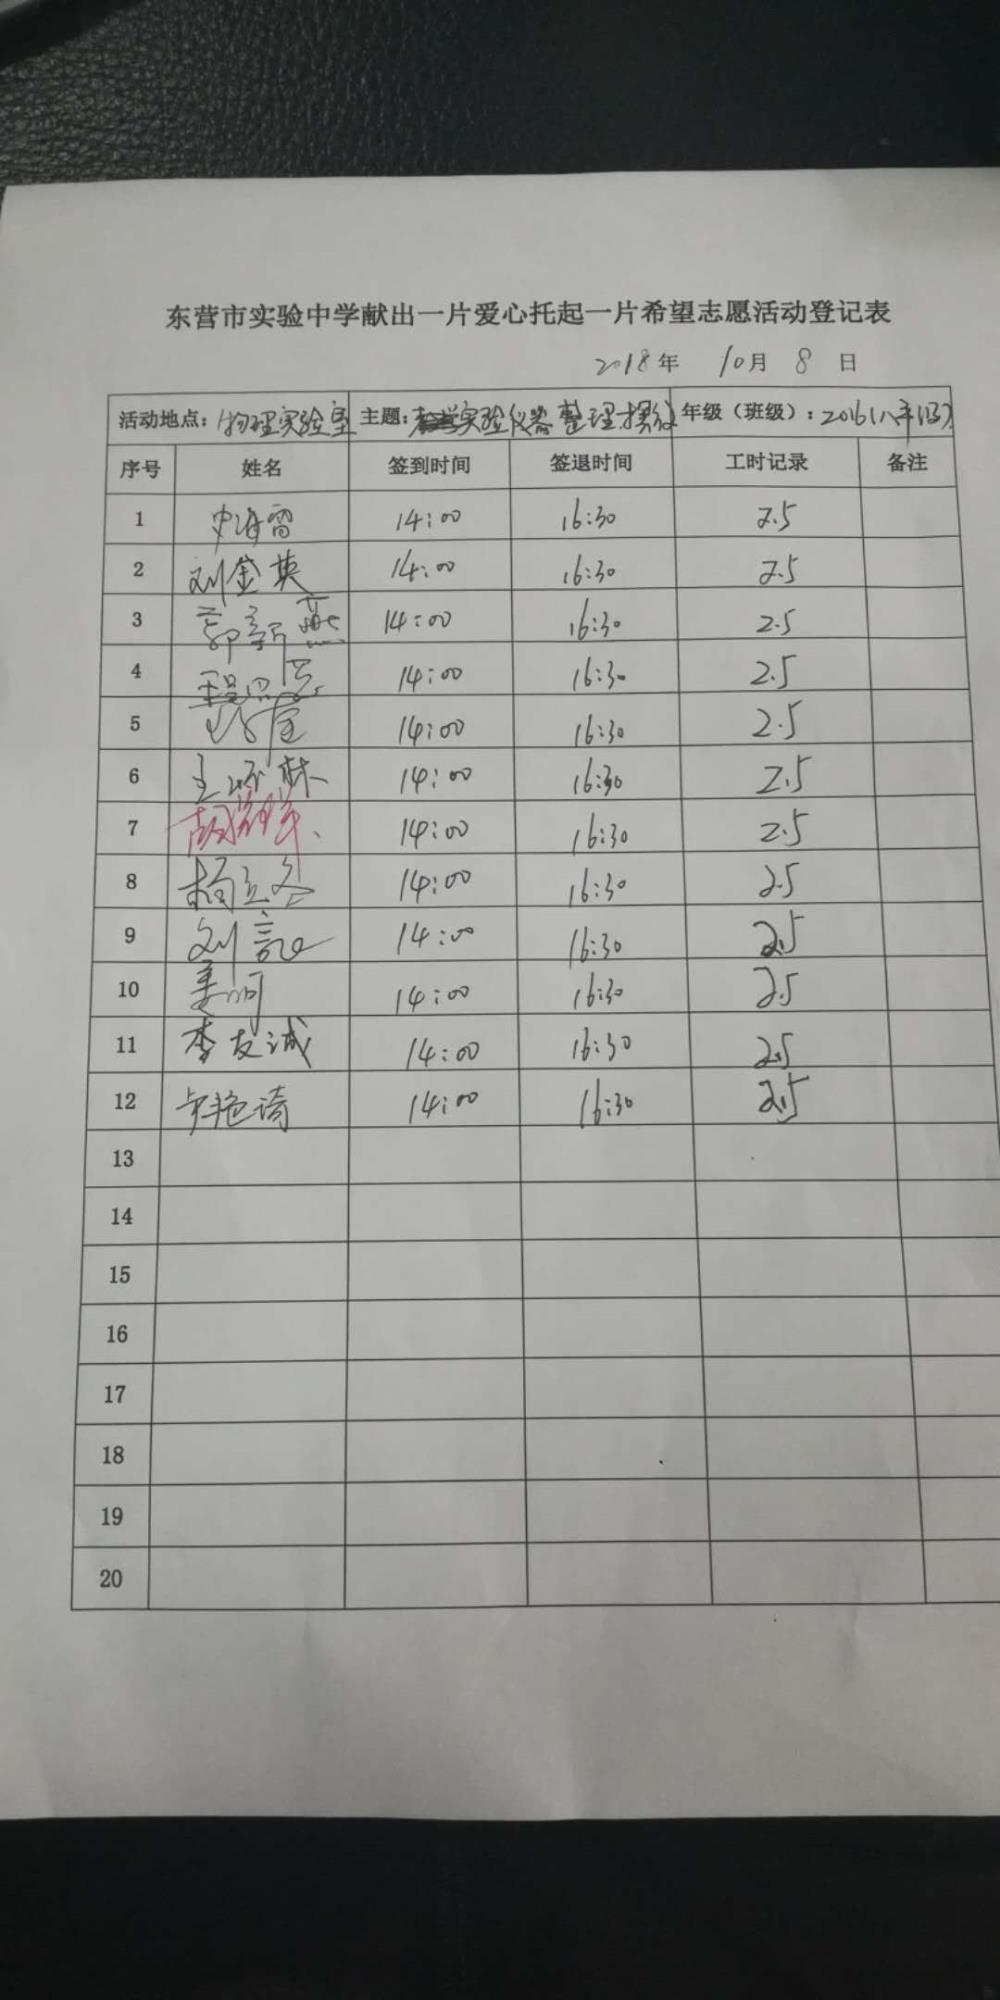 东营市实验中学献出一片爱心托起一片希望志愿活动登记表
2018年 10月 8 日
活动地点：物理实验室 主题：实验仪器整理摆放 年级（班级）：2016(八年
序号 姓名 签到时间 签退时间 工时记录 备注
1 史海雷 14:00 16:30 2.5
2 刘金英 14:00 16:30 2.5
3 郭新燕 14:00 16:30 2.5
4 14:00 16:30 2.5
5 14:00 16:30 2.5
6 14:00 16:30 2.5
7 14:00 16:30 2.5
8 杨立冬 14:00 16:30 2.5
9 刘 14:00 16:30 2.5
10 姜 14:00 16:30 2.5
11 李友诚 14:00 16:30 2.5
12 艳琦 14:00 16:30 2.5
13
14
15
16
17
18
19
20